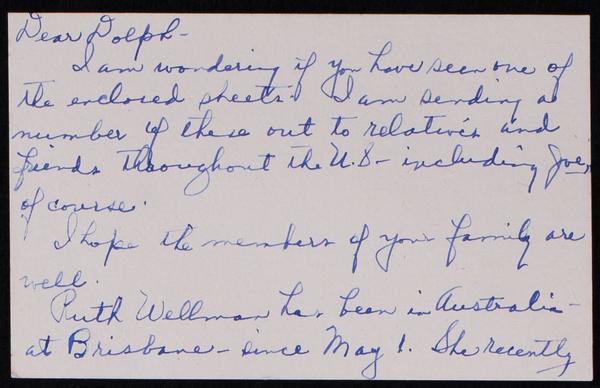 Dear Dolph-
I am wondering if you have seen one of
the enclosed sheets. I am sending a
number of these out to relatives and
friends throughout the U.S- including Joe,
of course.
I hope the members of your family are
well.
Ruth Wellman has been in Australia-
at Brisbane- since May 1. She recently